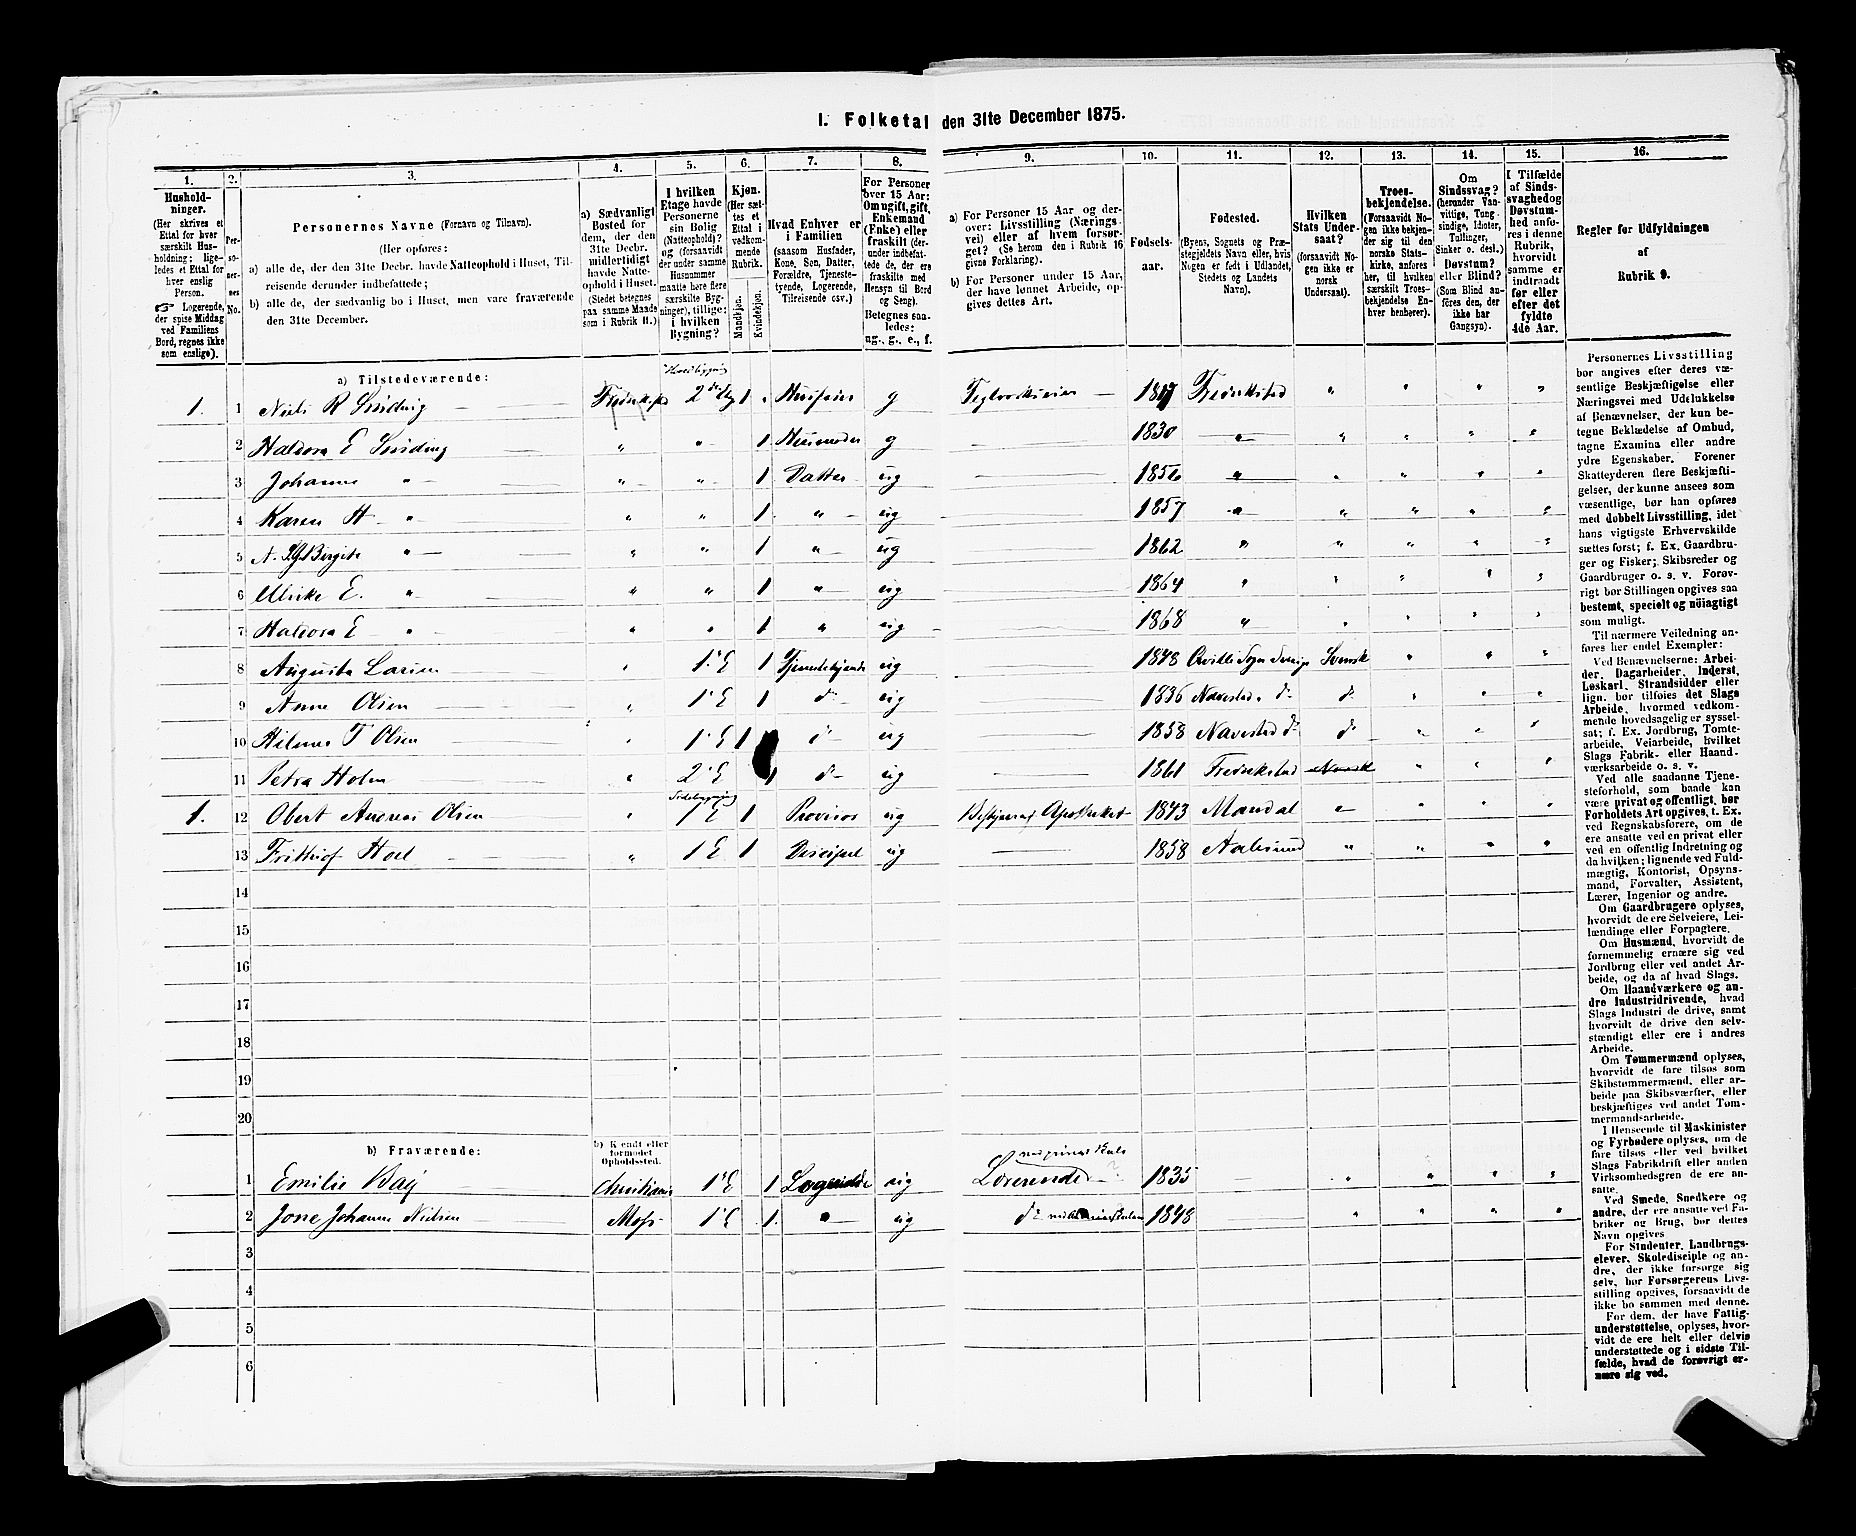 I. Folketal den 31te December 1875.
1. 2. 3. 4. 5. 6. 7. 8. 9. 10. 11. 12. 13. 14. 15. 16.
Hushold-
ninger.
(Her skrives et
Ettal for hver
særskilt Hus-
holdning; lige-
ledes et Ettal for
hver enslig
Person.
☞ Logerende,
der spise Middag
ved Familiens
Bord, regnes ikke
som enslige).
Per-
so-
ner-
nes
No.
Personernes Navne (Fornavn og Tilnavn).
(Her opføres:
a) alle de, der den 31te Decbr. havde Natteophold i Huset, Til-
reisende derunder indbefattede;
b) alle de, der sædvanlig bo i Huset, men vare fraværende
den 31te December.
a) Sædvanligt
Bosted for
dem, der den
31te Decbr.
midlertidigt
havde Natte-
ophold i Huset.
(Stedet betegnes
paa samme Maade
som i Rubrik 11.)
I hvilken
Etage havde
Personerne
sin Bolig
(Natteophold)?
og (forsaavidt
der under samme
Husnummer
maatte høre flere
særskilte Byg-
ninger), tillige:
i hvilken
Bygning?
Kjøn.
(Her sæt-
tes et
Ettal i
vedkom-
mende
Rubrik.
Mandkjøn.
Kvindekjøn.
Hvad Enhver er
i Familien
(saasom Husfader,
Kone, Søn, Datter,
Forældre, Tjeneste-
tyende, Logerende,
Tilreisende osv.)
For Personer
over 15 Aar:
Om ugift, gift,
Enkemand
(Enke) eller
fraskilt (der-
under indbefat-
tede de, der ere
fraskilte med
Hensyn til Bord
og Seng).
Betegnes saa-
ledes:
ug., g., e., f.
a) For Personer 15 Aar og der-
over: Livsstilling (Nærings-
vei) eller af hvem forsør-
get? (Se herom den i Rubrik 16
givne Forklaring).
b) For Personer under 15 Aar,
der have lønnet Arbeide, op-
gives dettes Art.
Fødsels-
aar.
Fødested.
(Byens, Sognets og Præ-
stegjeldets Navn eller, hvis
Nogen er født i Udlandet,
Stedets og Landets
Navn).
Hvilken
Stats Under-
saat?
(forsaavidt No-
gen ikke er
norsk
Undersaat).
Troes-
bekjendelse.
(Forsaavidt No-
gen ikke bekjen-
der sig til den
norske Stats-
kirke, anføres
her, til hvilken
særskilt Troes-
bekjendelse En-
hver henhører).
Om
Sindssvag?
(herunder Van-
vittige, Tung-
sindige, Idioter,
Tullinger,
Sinker o. desl.)
Døvstum?
eller Blind?
(Som Blind an-
føres den, der
ikke har
Gangsyn).
I Tilfælde
af Sinds-
svaghed og
Døvstum-
hed anfø-
res i denne
Rubrik,
hvorvidt
samme er
indtraadt
før eller
efter det
fyldte
4de Aar.
Regler for Udfyldningen
af
Rubrik 9.
a) Tilstedeværende: Hovedbygning
1. 1 Niels R Sinding Fredrikst 2den Etg 1 Husfader g Teglværkseier 1817 Fredrikstad
2 Haldora E Sinding " " 1 Husmoder g 1830 "
3 Johanne " " " 1 Datter ug 1856 "
4 Karen H " " " 1 " ug 1857 "
5 Bergite " " " 1 " ug 1862 "
6 Ulrike E. " " " 1 " ug 1864 "
7 Haldora E " " " 1 " ug 1868 "
8 Augusta Larsen " 1. E 1 ug 1848 Svensk
9 Anne Olsen " 1 E 1 do ug 1836 Navestad do do
10 Hilmer T Olsen " 1 E 1 do ug 1858 Navestad do do
11 Petra Holm " 2 E 1 do ug 1861 Fredrikstad Norsk
Sidebygning
1. 12 Obert Andreas Olsen " 1 E 1 Provisor ug Bestyrer af Apotheket 1843 Mandal
13 Frithiof Hoel " 1 E 1 Discipel ug 1858 Aalesund
14
15
16
17
18
19
20
b) Fraværende:
b) Kendt eller
formodet
Opholdssted.
1 Emilie Bay Christiania 1 E 1 Logerende ug Lærerinde ved pigeskole ? 1835
2 Johanne Nielsen Moss 1 E 1 " ug do 1848
3
4
5
6
Personernes Livsstilling
bør angives efter deres væ-
sentlige Beskjæftigelse eller
Næringsvei med Udelukkelse
af Benævnelser, der kun be-
tegne Beklædelse af Ombud,
tagne Examina eller andre
ydre Egenskaber. Forener
Skatteyderen flere Beskjæfti-
gelser, der kunne ansees som
væsentlige, bør han opføres
med dobbelt Livsstilling, idet
hans vigtigste Erhvervskilde
sættes først; f. Ex. Gaardbru-
ger og Fisker; Skibsreder og
Gaardbruger o. s. v. Forøv-
rigt bør Stillingen opgives saa
bestemt, specielt og nøiagtigt
som muligt.
Til nærmere Veiledning an-
føres her endel Exempler:
Ved Benævnelserne: Arbei-
der, Dagarbeider, Inderst,
Løskarl, Strandsidder eller
lign. bør tilføies det Slags
Arbeide, hvormed vedkom-
mende hovedsagelig er syssel-
sat; f. Ex. Jordbrug, Tomte-
arbeide, Veiarbeide, hvilket
Slags Fabrik- eller Haand-
værksarbeide o. s. v.
Ved alle saadanne Tjene-
steforhold, som baade kan
være privat og offentligt, bør
Forholdets Art opgives, t. Ex.
ved Regnskabsførere, om de
ere ansatte ved en privat eller
ved en offentlig Indretning og
da hvilken; lignende ved Fuld-
mægtig, Kontorist, Opsyns-
mand, Forvalter, Assistent,
Lærer, Ingeniør og andre.
Om Gaardbrugere oplyses,
hvorvidt de ere Selveiere, Lei-
lændinge eller Forpagtere.
Om Husmænd, hvorvidt de
fornemmelig ernære sig ved
Jordbrug eller ved andet Ar-
beide, og da af hvad Slags.
Om Haandværkere og an-
dre Industridrivende, hvad
Slags Industri de drive, samt
hvorvidt de drive den selv-
stændigt eller ere i andres
Arbeide.
Om Tømmermænd oplyses,
hvorvidt de fare tilsøs som
Skibstømmermænd, eller ar-
beide paa Skibsværfter, eller
beskjæftiges ved andet Tøm-
mermandsarbeide.
I Henseende til Maskinister
og Fyrbødere oplyses, om de
fare tilsøs eller ved hvilket
Slags Fabrikdrift eller anden
Virksomhedsgren de ere an-
satte.
Ved Smede, Snedkere og
andre, der ere ansatte ved Fa-
briker og Brug, bør dettes
Navn opgives
For Studenter, Landbrugs-
elever, Skoledisciple og an-
dre, der ikke forsørge sig
selv, bør Forsørgerens Livs-
stilling opgives, forsaavidt de
ikke bo sammen med denne.
For dem, der have Fattig-
understøttelse, oplyses, hvor-
vidt de ere helt eller delvis
understøttede og i sidste Til-
fælde, hvad de forøvrigt er-
nære sig ved.